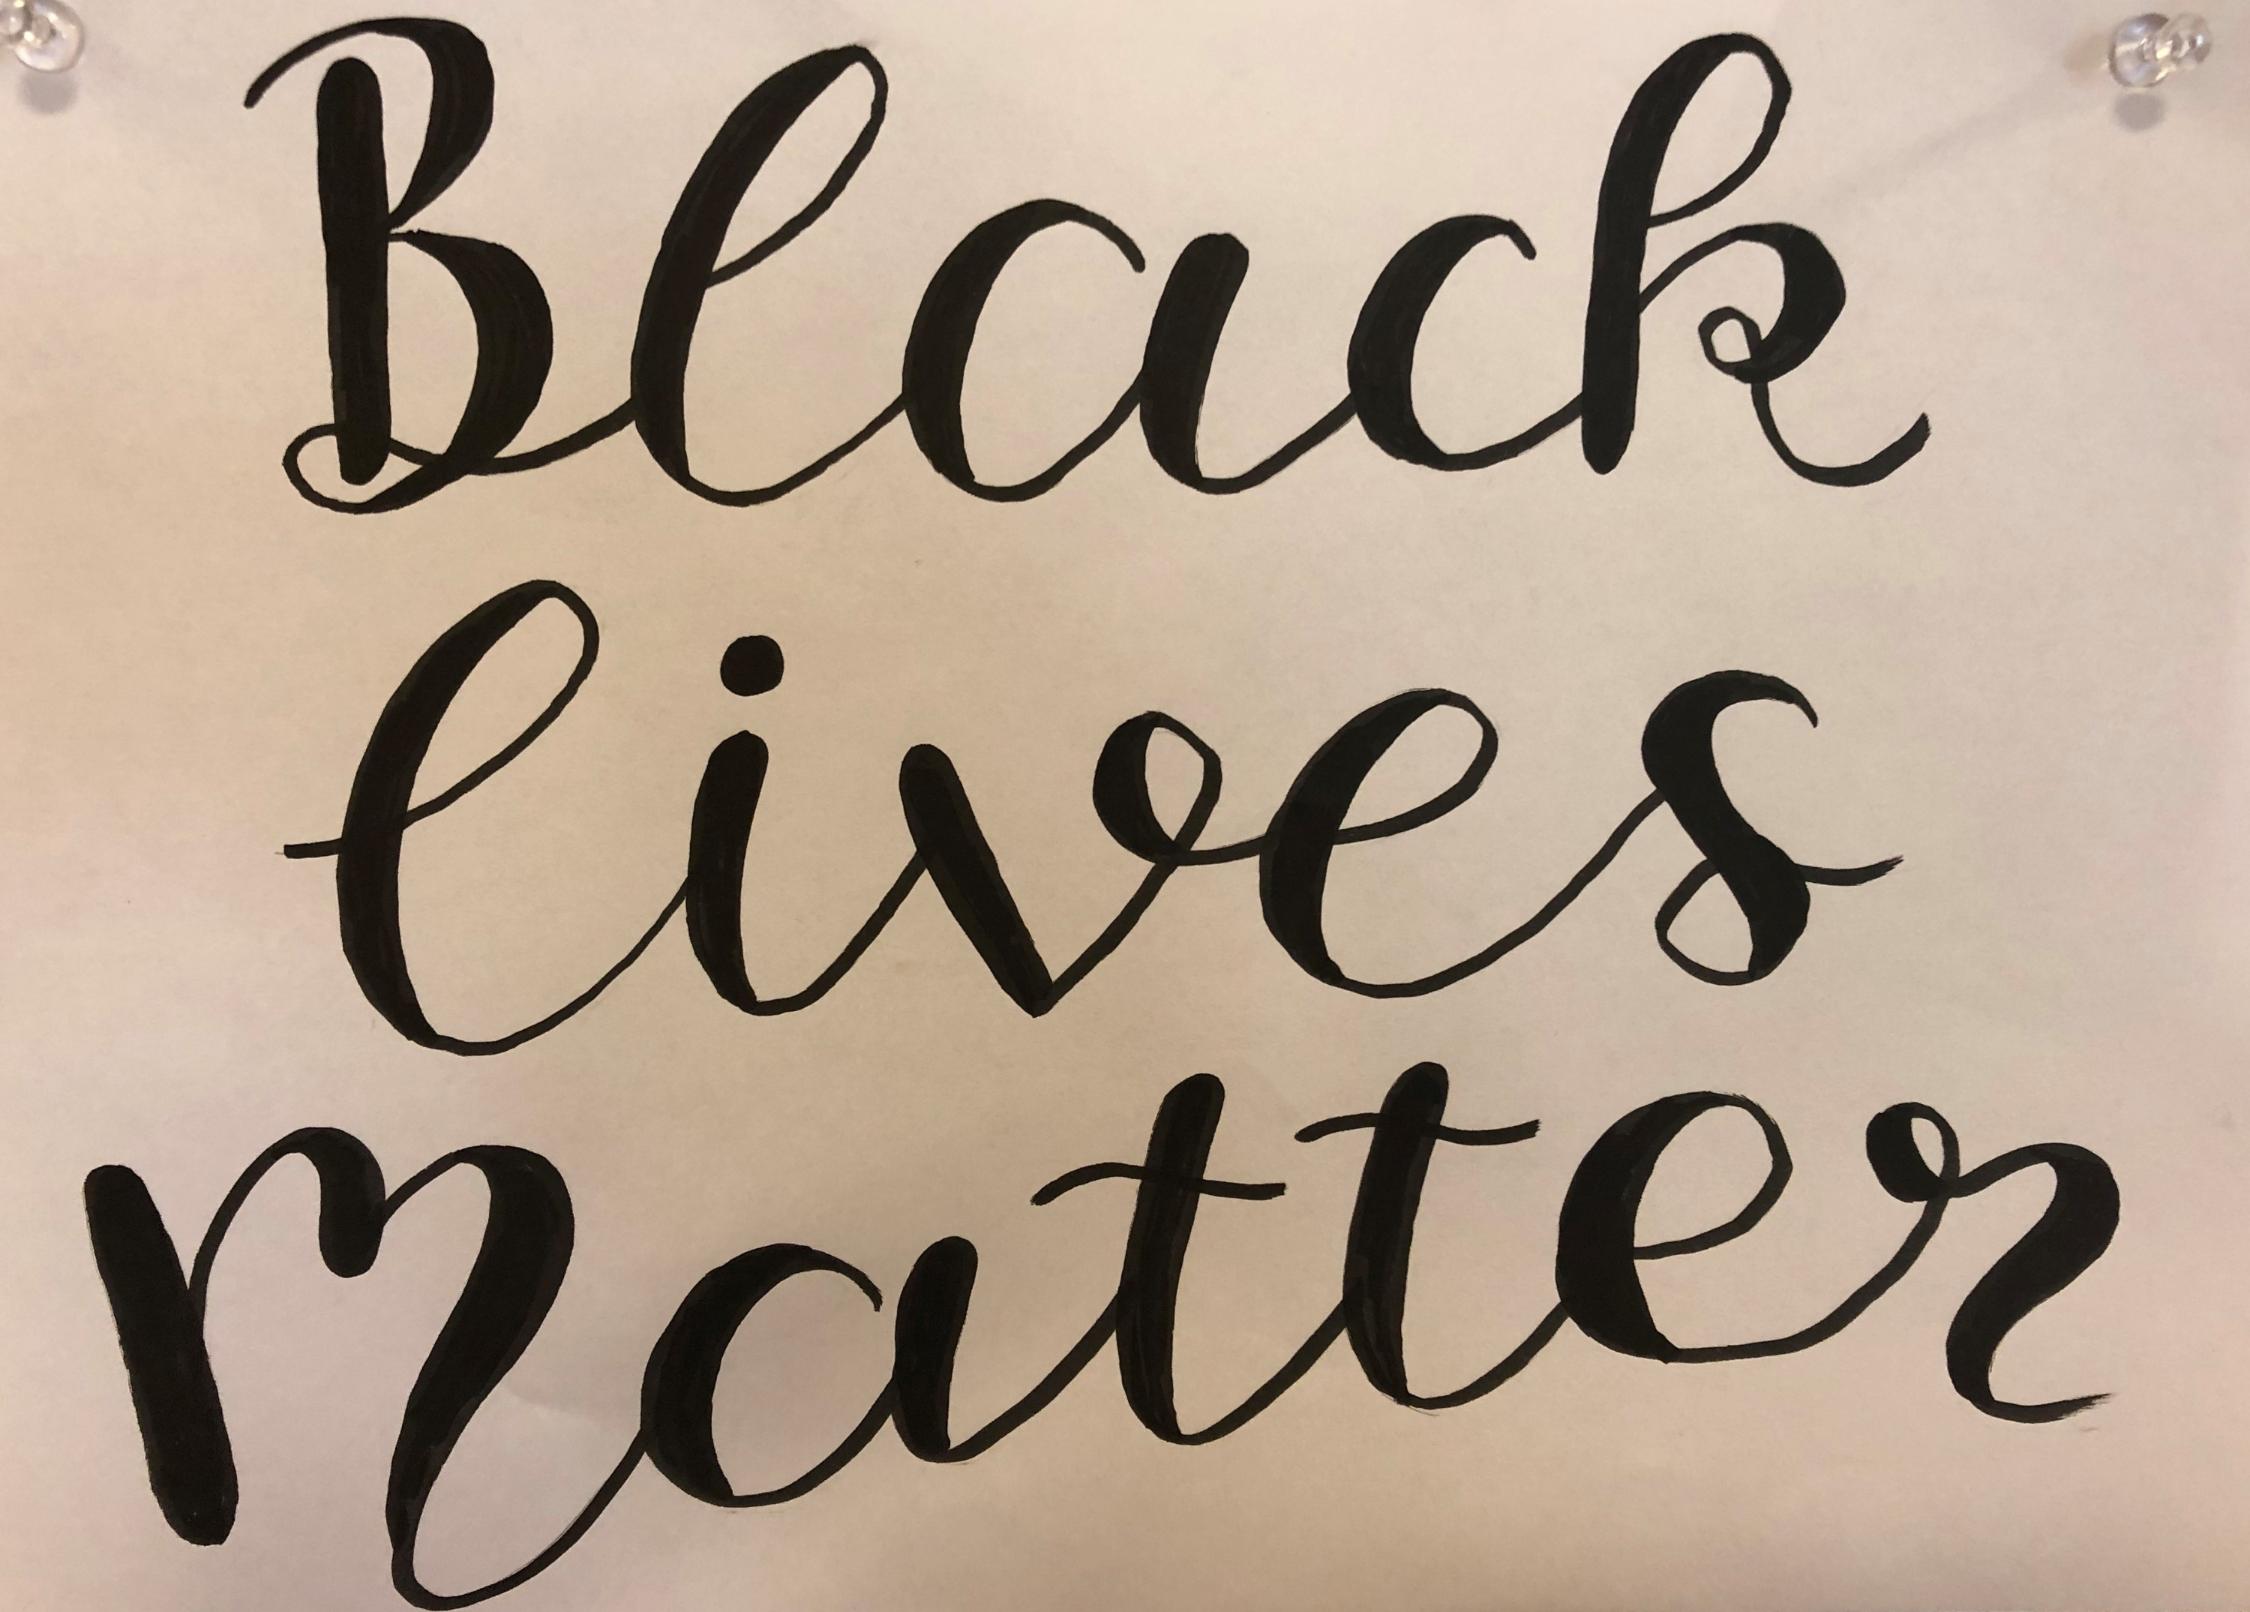 Black
lives
Matter